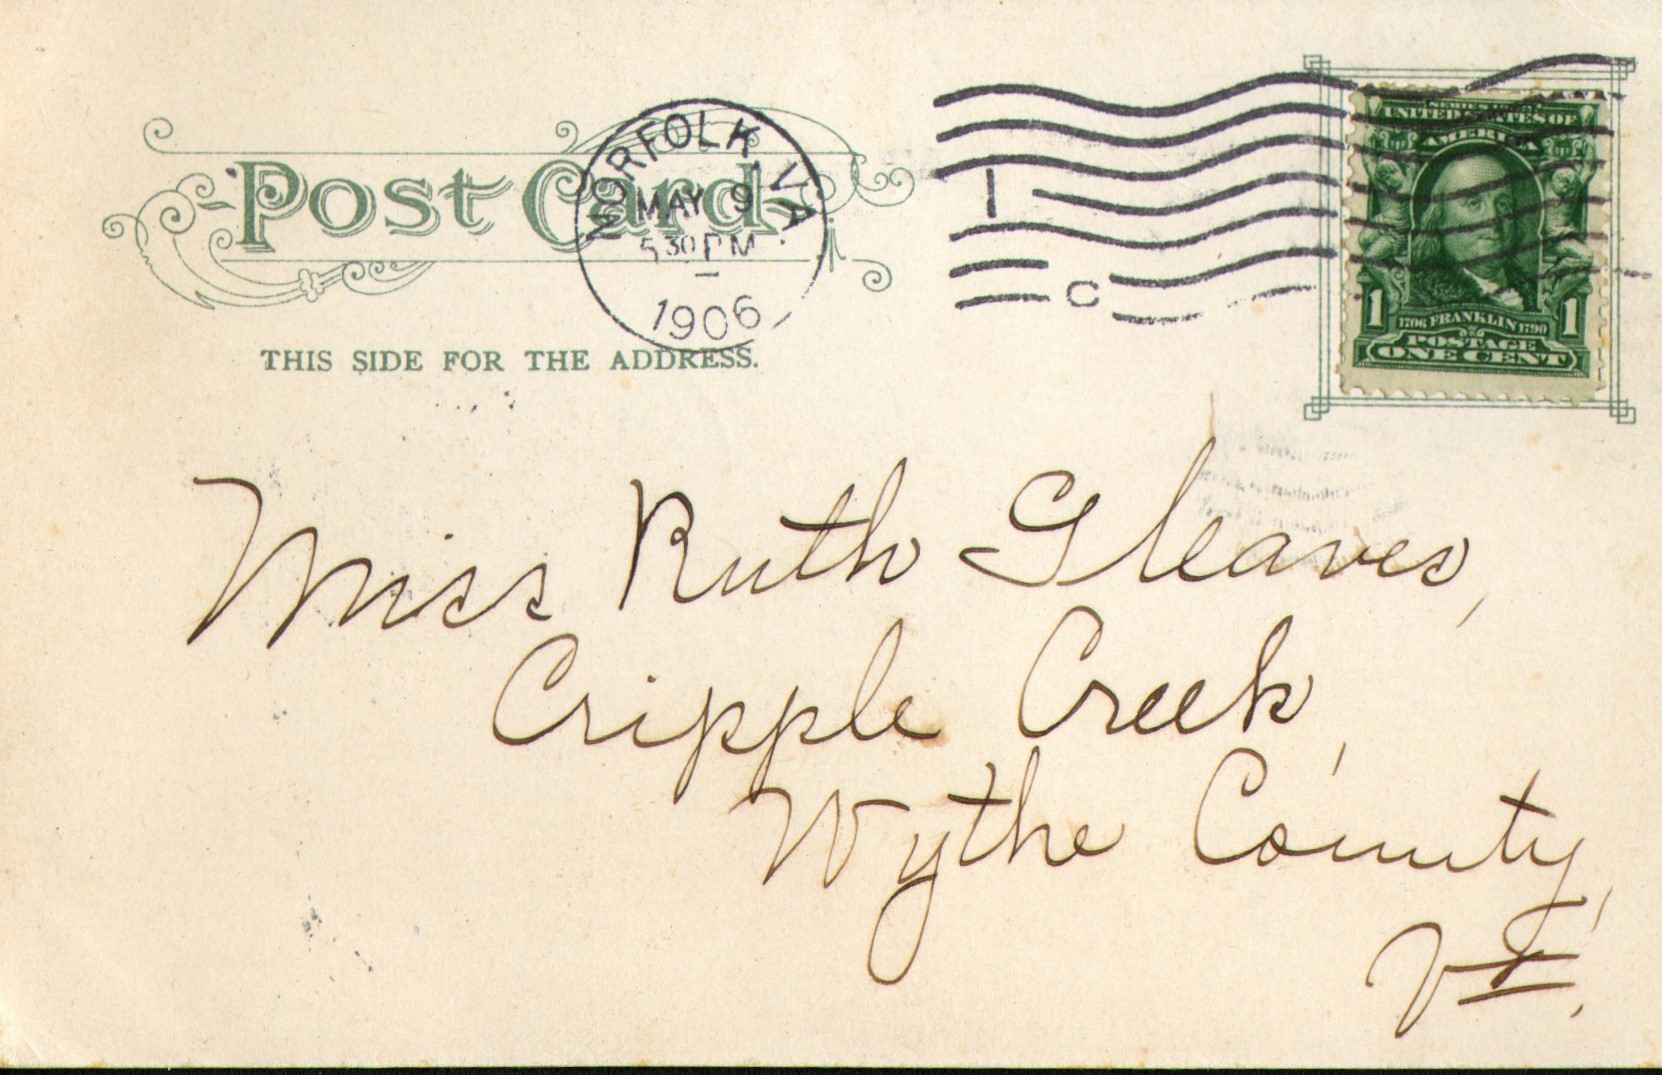 Post Card
THIS SIDE FOR THE ADDRESS.
NORFOLK, VA.
MAY 9
5 30 PM
1906
1
C
UNITED STATES OF
AMERICA
1 1
1706 FRANKLIN 1790
POSTAGE
ONE CENT
Miss Ruth Gleaves,
Cripple Creek,
Wythe County,
Va.